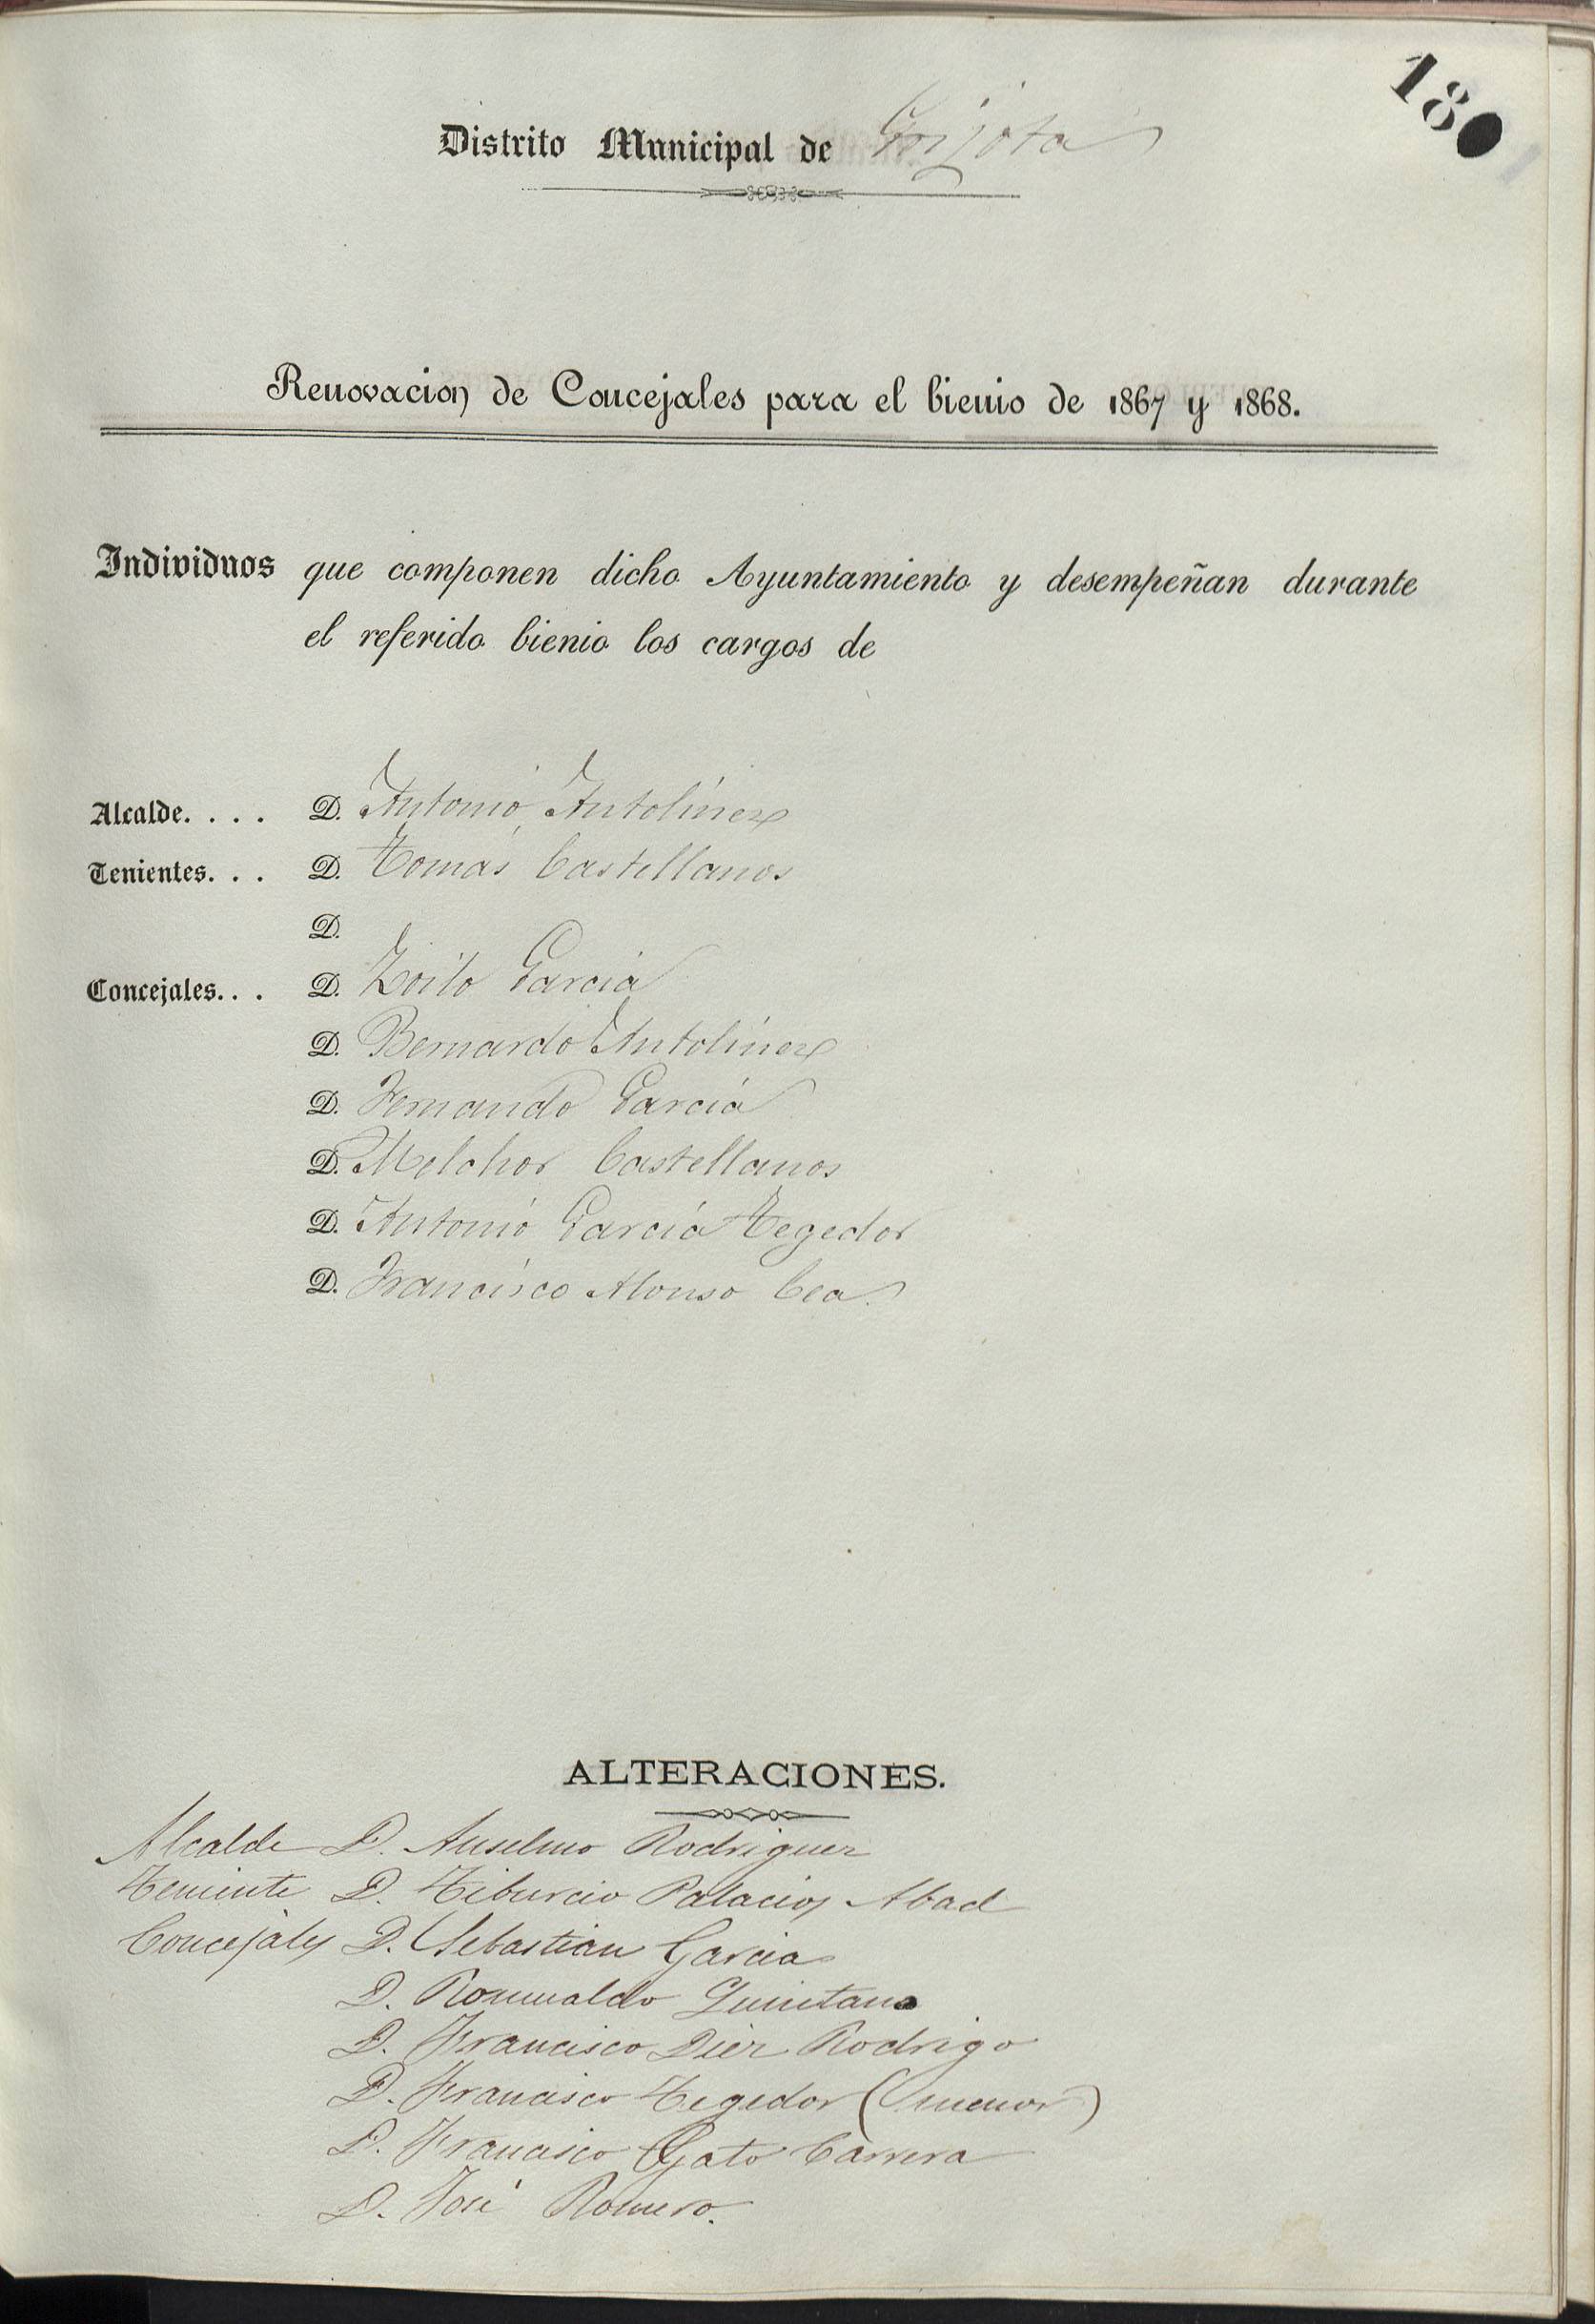 180
Distrito Municipal de Grijota
Renovacion de Concejales para el bienio de 1867 y 1868.
Individuos que componen dicho Ayuntamiento y desempeñan durante
el referido bienio los cargos de
Alcalde. . . . D. Antonio Antolínez
Tenientes. . . D. Tomás Castellanos
D.
Concejales. . . D. Zoilo García
D. Bernardo Antolínez
D. Fernando García
D. Melchor Castellanos
D. Antonio García Tegedor
D. Francisco Alonso Cea.
ALTERACIONES.
Alcalde D. Anselmo Rodriguez
Teniente D. Tiburcio Palacios Abad
Concejales D. Sebastian Garcia
D. Romualdo Quintana
D. Francisco Diez Rodrigo
D. Francisco Tegedor (menor)
D. Francisco Gato Carrera
D. José Romero.